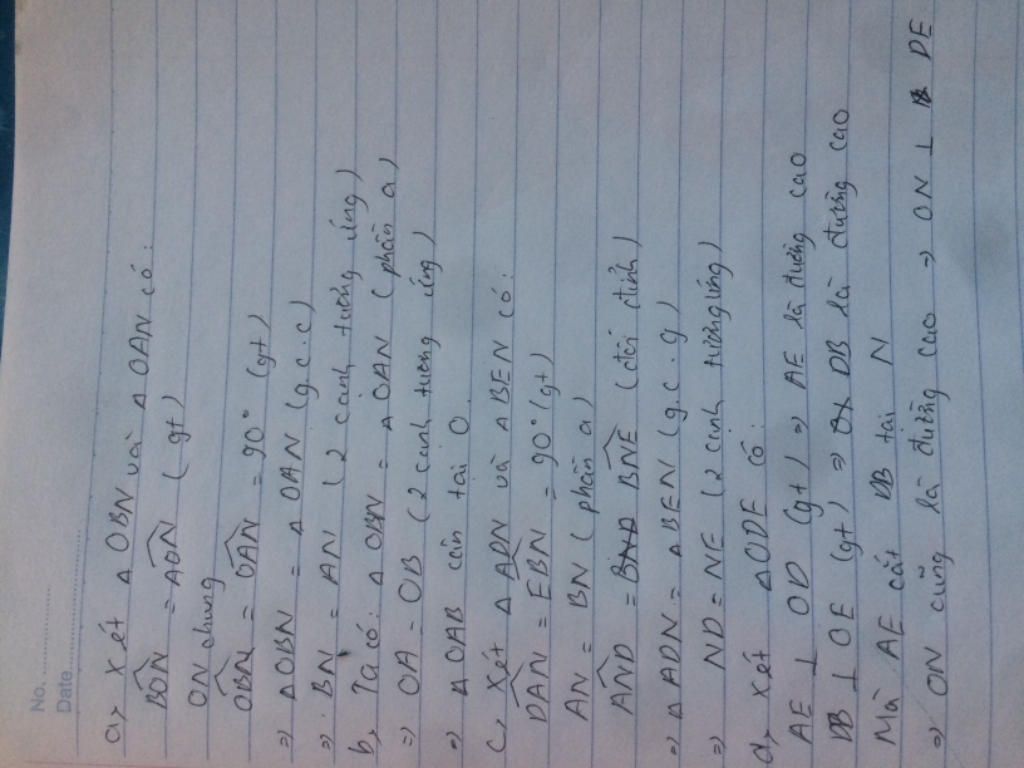 No.
Date
a, Xét Δ OBN và Δ OAN có:
BON = AON (gt)
ON chung
OBN = OAN = 90° (gt)
=> ΔOBN = Δ OAN (g.c.c)
=> BN = AN (2 cạnh tương ứng)
b, Ta có: Δ OBN = Δ OAN (phần a)
=> OA = OB (2 cạnh tương ứng)
=> Δ OAB cân tại O.
c, Xét Δ ADN và Δ BEN có:
DAN = EBN = 90° (gt)
AN = BN (phần a)
AND = BNE (đối đỉnh)
=> Δ ADN = Δ BEN (g.c.g)
=> ND = NE (2 cạnh tương ứng)
d, Xét ΔODE có:
AE ⊥ OD (gt) => AE là đường cao
DB ⊥ OE (gt) => DB là đường cao
Mà AE cắt DB tại N
=> ON cũng là đường cao -> ON ⊥ DE